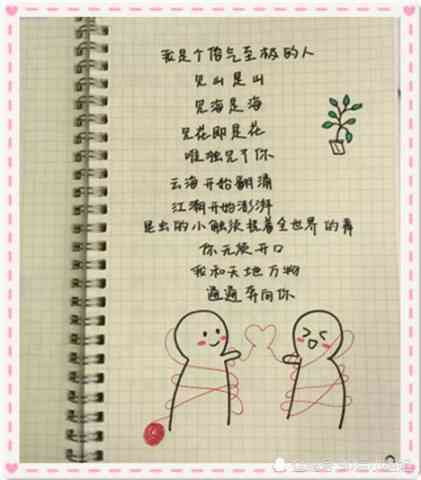 我是个俗气至极的人
见山是山
见海是海
见花即是花
唯独见了你
云海开始翻涌
江潮开始澎湃
昆虫的小触须挠着全世界的痒
你无须开口
我和天地万物
通通奔向你